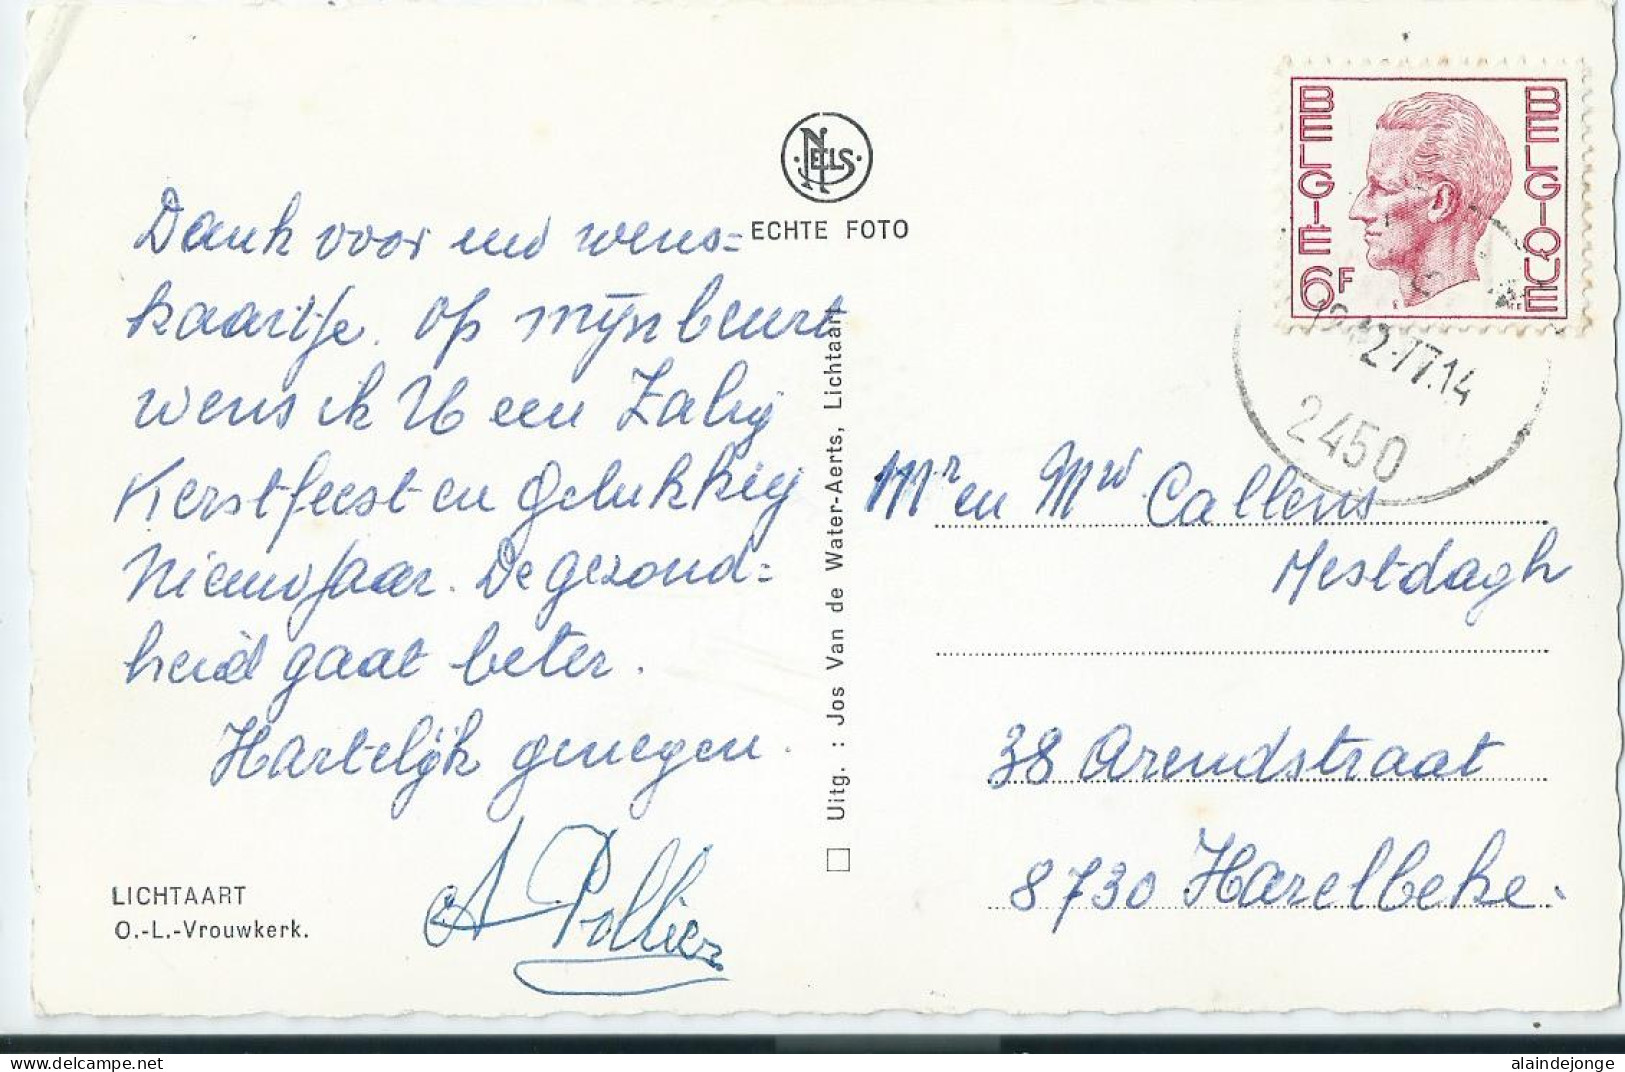 NELS
ECHTE FOTO
BELGIE BELGIQUE
6F
12-77.14
2450
Dank voor uw wens=
kaartje. Op mijn beurt
wens ik U een Zalig
Kerstfeest en Gelukkig
Nieuwjaar. De gezond=
heid gaat beter.
Hartelijk genegen.
A Pollier
LICHTAART
O.-L.-Vrouwkerk.
Uitg. : Jos Van de Water-Aerts, Lichtaart
Mr en Mw Callens
Mestdagh
38 Arendstraat
8730 Harelbeke.
alaindejonge